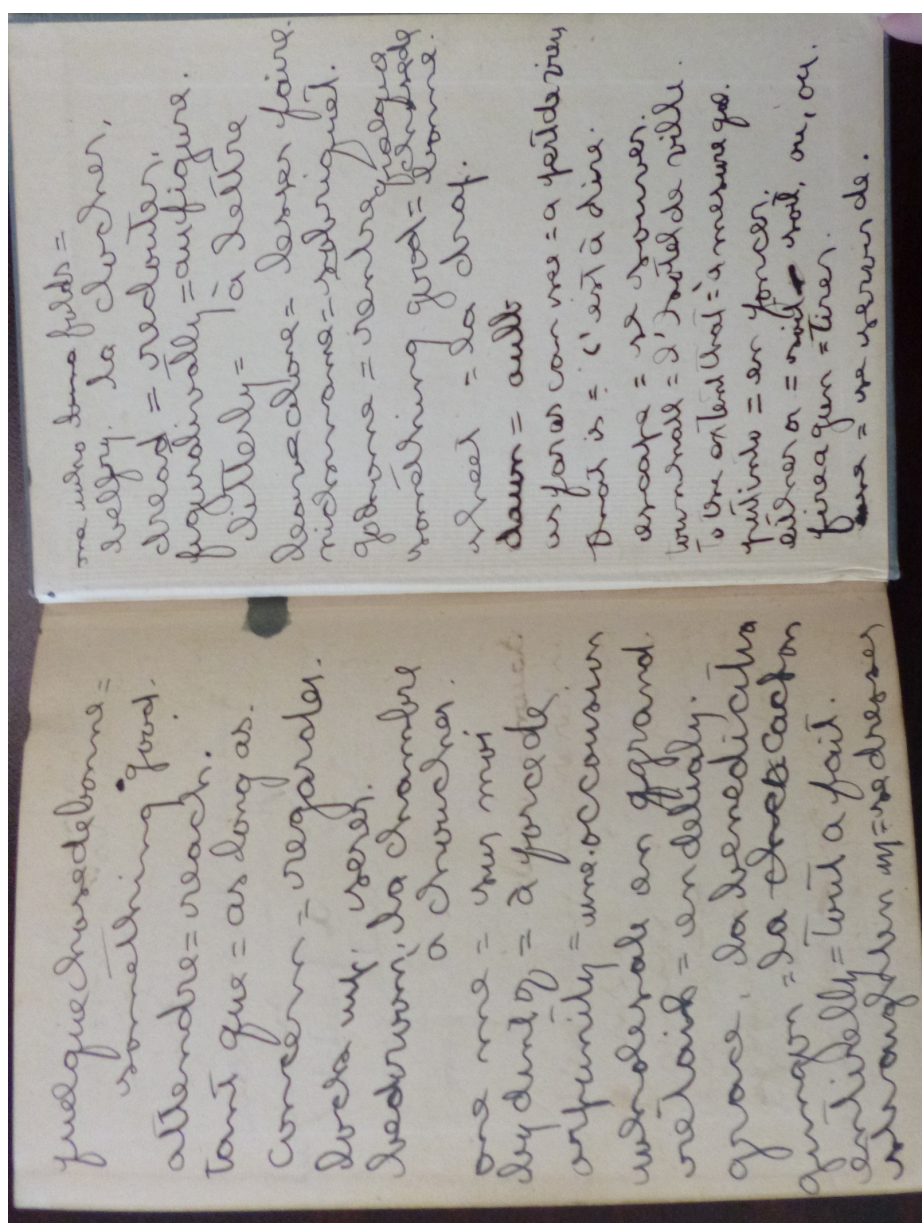 quelque chose de bonne =
something good.
attendre = reach.
tant que = as long as.
concern = regarder.
lock up: serer.
bedroom, la chambre
a coucher
one me = sur moi
by dint of = à force de
oppunity = une occasion
wholesale en ggrand.
retail = en detialy.
grace, la benedicite
gunigor = la cachon
entirelly = tout a fait.
straighten up = redresser
belfry. la clocher,
dread = redouter,
figuritivally = au figure.
litterly = à lettre
leave alone = lesser faire
nicknamane = sobriquet.
something good = quelque chose de bonne
sheet = la drap.
dawn = aulb
as far as can see = a perte de vieu
that is = c'est à dire.
escape = se sauver.
townhall = l'hotel de ville.
To the extent that = à mesure que.
put into = enfoncer,
either or = soit soit, ou, ou.
fire a gun = tirer.
use = se servoir de.